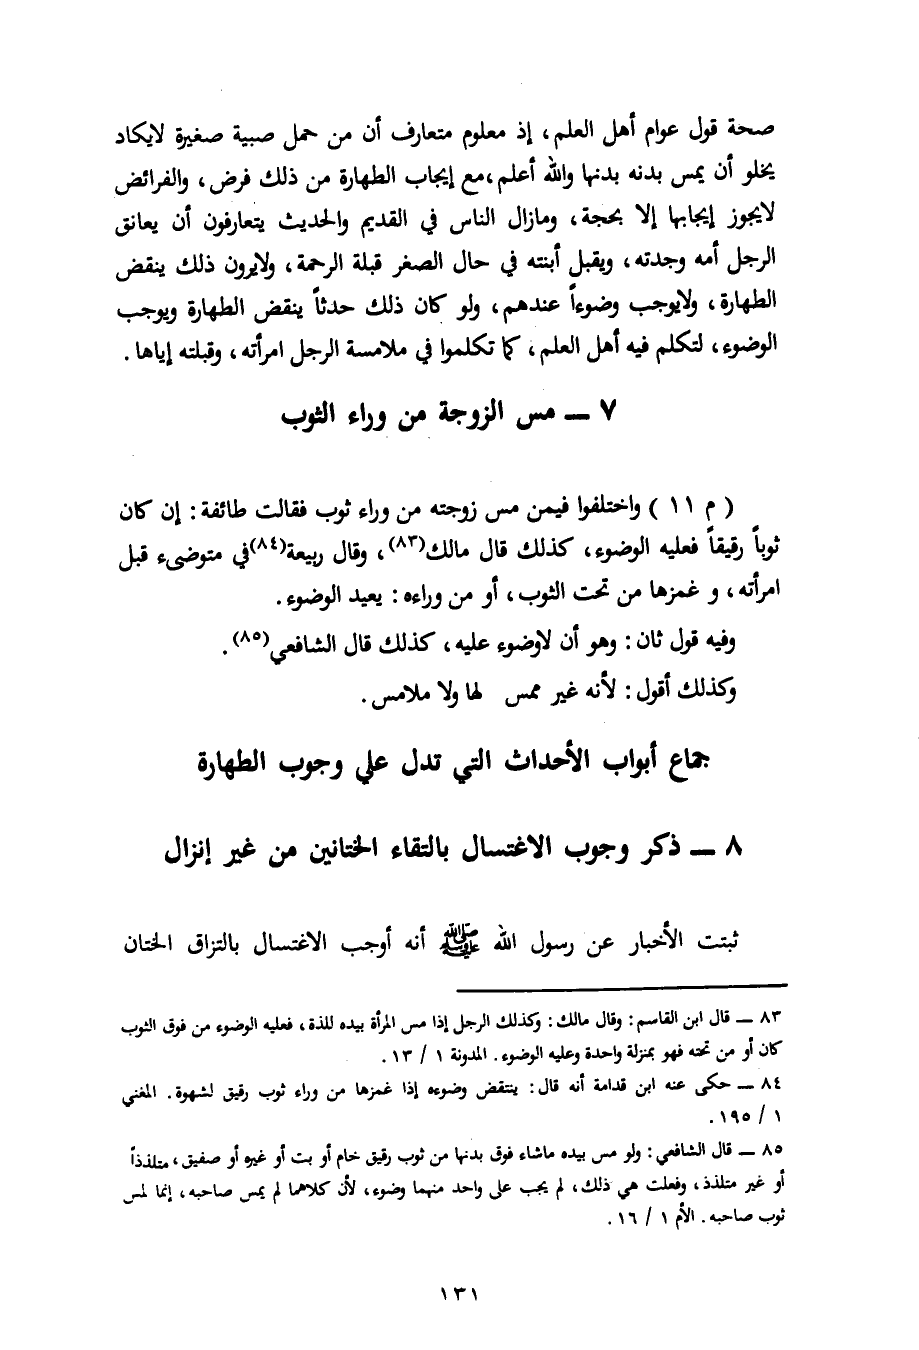 صحة قول عوام أهل العلم، إذ معلوم متعارف أن من حمل صبية صغيرة لايكاد
يخلو أن يمس بدنه بدنها والله أعلم،مع إيجاب الطهارة من ذلك فرض، والفرائض
لايجوز إيجابها إلا بحجة، ومازال الناس في القديم والحديث يتعارفون أن يعانق
الرجل أمه وجدته، ويقبل أبنته في حال الصغر قبلة الرحمة، ولايرون ذلك ينقض
الطهارة، ولايوجب وضوءاً عندهم، ولو كان ذلك حدثاً ينقض الطهارة ويوجب
الوضوء، لتكلم فيه أهل العلم، كما تكلموا في ملامسة الرجل امرأته، وقبلته إياها.
٧ ــ مس الزوجة من وراء الثوب
( م ١١ ) واختلفوا فيمن مس زوجته من وراء ثوب فقالت طائفة: إن كان
ثوباً رقيقاً فعليه الوضوء، كذلك قال مالك(٨٣)، وقال ربيعة(٨٤)في متوضىء قبل
امرأته، و غمزها من تحت الثوب، أو من وراءه: يعيد الوضوء.
وفيه قول ثان: وهو أن لاوضوء عليه، كذلك قال الشافعي(٨٥).
وكذلك أقول: لأنه غير ممس لها ولا ملامس.
جماع أبواب الأحداث التي تدل علي وجوب الطهارة
٨ ــ ذكر وجوب الاغتسال بالتقاء الختانين من غير إنزال
ثبتت الأخبار عن رسول الله ﷺ أنه أوجب الاغتسال بالتزاق الختان
٨٣ ــ قال ابن القاسم: وقال مالك: وكذلك الرجل إذا مس المرأة بيده للذة، فعليه الوضوء من فوق الثوب
كان أو من تحته فهو بمنزلة واحدة وعليه الوضوء. المدونة ١ / ١٣.
٨٤ ــ حكى عنه ابن قدامة أنه قال: ينتقض وضوءه إذا غمزها من وراء ثوب رقيق لشهوة. المغني
١ / ١٩٥.
٨٥ ــ قال الشافعي: ولو مس بيده ماشاء فوق بدنها من ثوب رقيق خام أو بت أو غيره أو صفيق، متلذذاً
أو غير متلذذ، وفعلت هي ذلك، لم يجب على واحد منهما وضوء، لأن كلاهما لم يمس صاحبه، إنما لمس
ثوب صاحبه. الأم ١ / ١٦.
١٣١